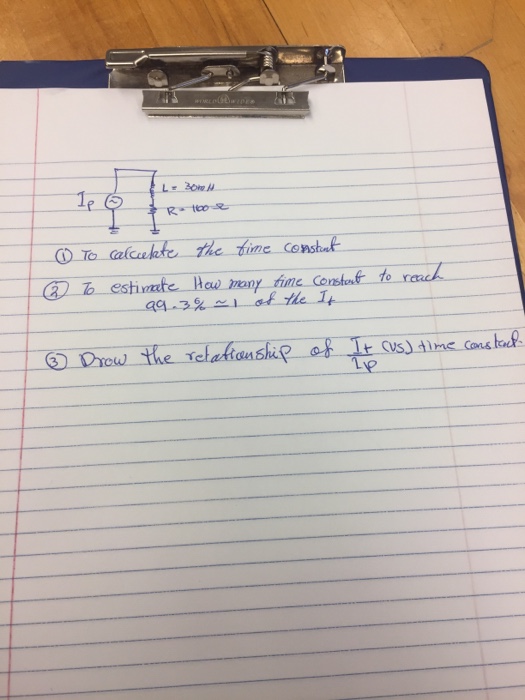 L = 30mH
Ip
R = 100 Ω
① To calculate the time constant
② To estimate How many time constant to reach
99.3% ≃ 1 of the It
③ Drow the relationship of It (vs) time constant.
Ip